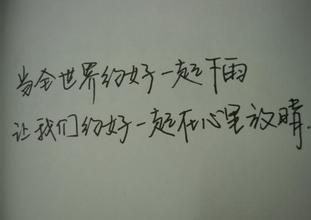 当全世界约好一起下雨
让我们约好一起在心里放晴